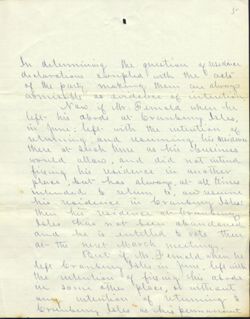 In determining the question of residence
declarations coupled with the acts
of the party making them are always
admissible as evidence of intention
Now if Mr. Fernald when he
left his abode at Cranberry Isles,
in June; left with the intention of
returning and resuming his
there at such time as his business
would allow, and did not intend
fixing his residence in another
place, but has always, at all times
intended to return to, and resume
his residence in Cranberry Isles
then his residence at Cranberry
Isles has not been abandoned
and he is entitled to vote there
at the next March meeting.
But if Mr. Fernald when he
left Cranberry Isles in June left with
the intention of fixing his abode
in some other place, or without
any intention of returning to
Cranberry Isles as his permanent